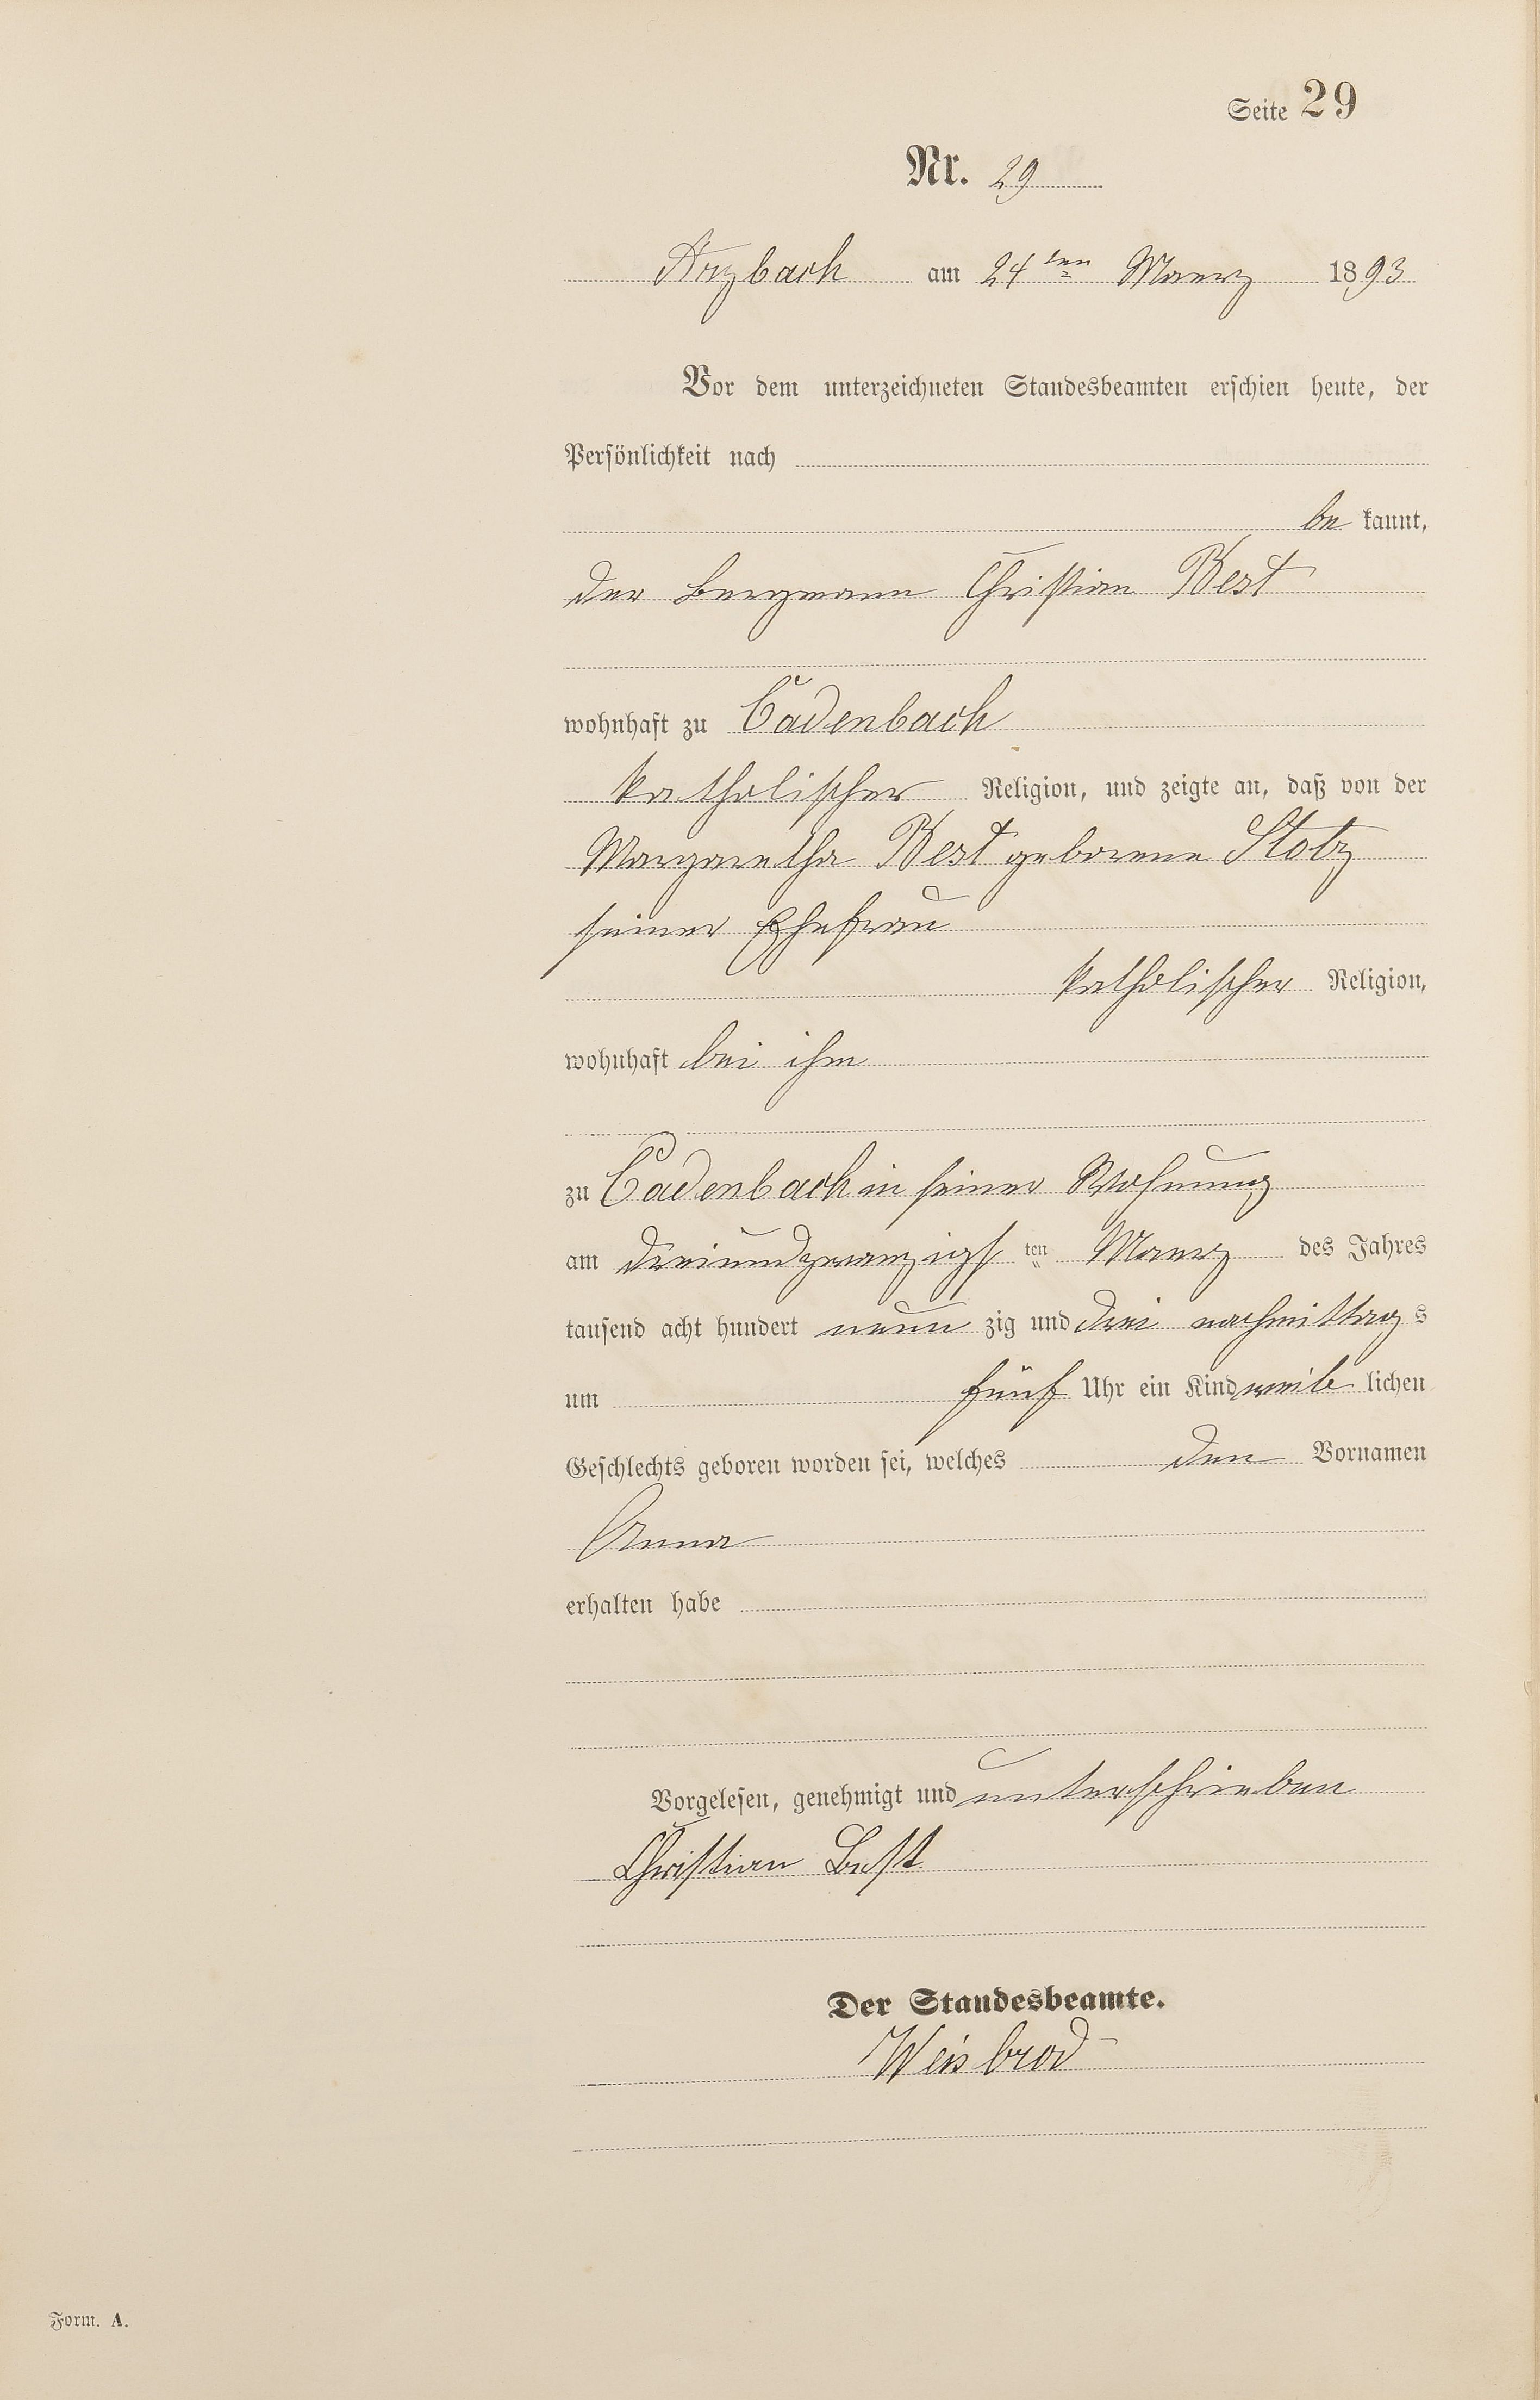 Seite 29
Nr. 29
Arzbach am 24ten Maerz 1893
Vor dem unterzeichneten Standesbeamten erschien heute, der
Persönlichkeit nach
be kannt,
der Bergmann Christian Best
wohnhaft zu Cadenbach
katholischer Religion, und zeigte an, daß von der
Margaretha Best geborene Stotz
seiner Ehefrau
katholischer Religion,
wohnhaft bei ihm
zu Cadenbach in seiner Wohnung
am dreiundzwanzigsten Maerz des Jahres
tausend acht hundert neun zig und drei nachmittags
um fünf Uhr ein Kind weib lichen
Geschlechts geboren worden sei, welches den Vornamen
Anna
erhalten habe
Vorgelesen, genehmigt und unterschrieben
Christian Best
Der Standesbeamte.
Weisbrod
Form. A.